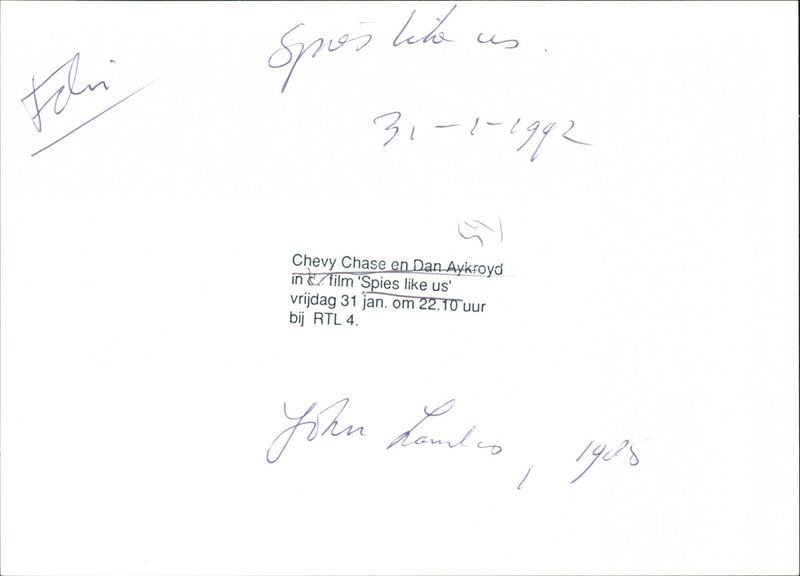 Spies like us.
31-1-1992
Chevy Chase en Dan Aykroyd
in film 'Spies like us'
vrijdag 31 jan. om 22.10 uur
bij RTL 4.
John Landis, 1985